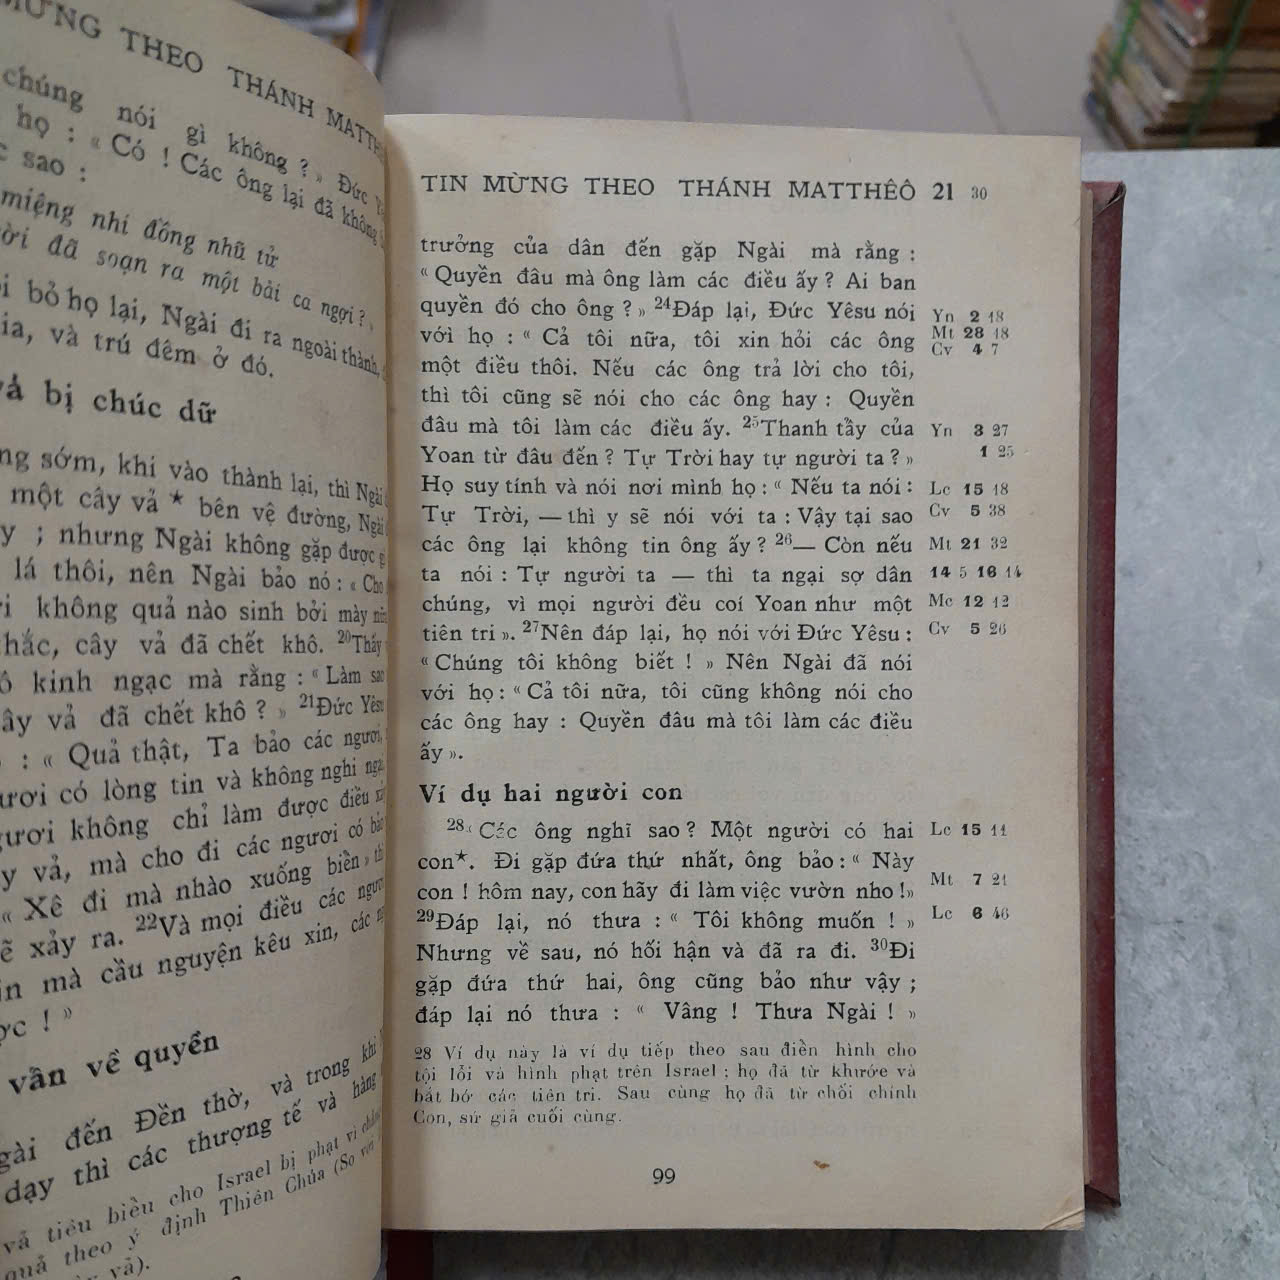 MỪNG THEO THÁNH
chúng nói gì không ? » Đức
họ : « Có ! Các ông lại đã không
sao :
miệng nhi đồng nhũ tử
đã soạn ra một bài ca ngợi ? »
bỏ họ lại, Ngài đi ra ngoài thành,
và trú đêm ở đó.
vả bị chúc dữ
sớm, khi vào thành lại, thì Ngài
một cây vả * bên vệ đường, Ngài
; nhưng Ngài không gặp được
lá thôi, nên Ngài bảo nó : « Cho
không quả nào sinh bởi mày
cây vả đã chết khô. 20Thấy
kinh ngạc mà rằng : « Làm sao
vả đã chết khô ? » 21Đức Yêsu
: « Quả thật, Ta bảo các ngươi,
có lòng tin và không nghi
không chỉ làm được điều
vả, mà cho đi các ngươi có bảo
« Xê đi mà nhào xuống biển »
xảy ra. 22Và mọi điều các ngươi
mà cầu nguyện kêu xin, các
! »
vấn về quyền
đến Đền thờ, và trong khi
dạy thì các thượng tế và hàng
vả tiêu biểu cho Israel bị phạt vì
theo ý định Thiên Chúa (So với
vả).
TIN MỪNG THEO THÁNH MATTHÊÔ 21 30
trưởng của dân đến gặp Ngài mà rằng :
« Quyền đâu mà ông làm các điều ấy ? Ai ban
quyền đó cho ông ? » 24Đáp lại, Đức Yêsu nói
với họ : « Cả tôi nữa, tôi xin hỏi các ông
một điều thôi. Nếu các ông trả lời cho tôi,
thì tôi cũng sẽ nói cho các ông hay : Quyền
đâu mà tôi làm các điều ấy. 25Thanh tẩy của
Yoan từ đâu đến ? Tự Trời hay tự người ta ? »
Họ suy tính và nói nơi mình họ : « Nếu ta nói :
Tự Trời, — thì y sẽ nói với ta : Vậy tại sao
các ông lại không tin ông ấy ? 26— Còn nếu
ta nói : Tự người ta — thì ta ngại sợ dân
chúng, vì mọi người đều coi Yoan như một
tiên tri ». 27Nên đáp lại, họ nói với Đức Yêsu :
« Chúng tôi không biết ! » Nên Ngài đã nói
với họ : « Cả tôi nữa, tôi cũng không nói cho
các ông hay : Quyền đâu mà tôi làm các điều
ấy ».
Ví dụ hai người con
28« Các ông nghĩ sao ? Một người có hai
con*. Đi gặp đứa thứ nhất, ông bảo : « Này
con ! hôm nay, con hãy đi làm việc vườn nho ! »
29Đáp lại, nó thưa : « Tôi không muốn ! »
Nhưng về sau, nó hối hận và đã ra đi. 30Đi
gặp đứa thứ hai, ông cũng bảo như vậy ;
đáp lại nó thưa : « Vâng ! Thưa Ngài ! »
Yn 2 18
Mt 28 18
Cv 4 7
Yn 3 27
1 25
Lc 15 18
Cv 5 38
Mt 21 32
14 5 16 14
Mc 12 12
Cv 5 26
Lc 15 11
Mt 7 21
Lc 6 46
28 Ví dụ này là ví dụ tiếp theo sau điển hình cho
tội lỗi và hình phạt trên Israel ; họ đã từ khước và
bắt bớ các tiên tri. Sau cùng họ đã từ chối chính
Con, sứ giả cuối cùng.
99